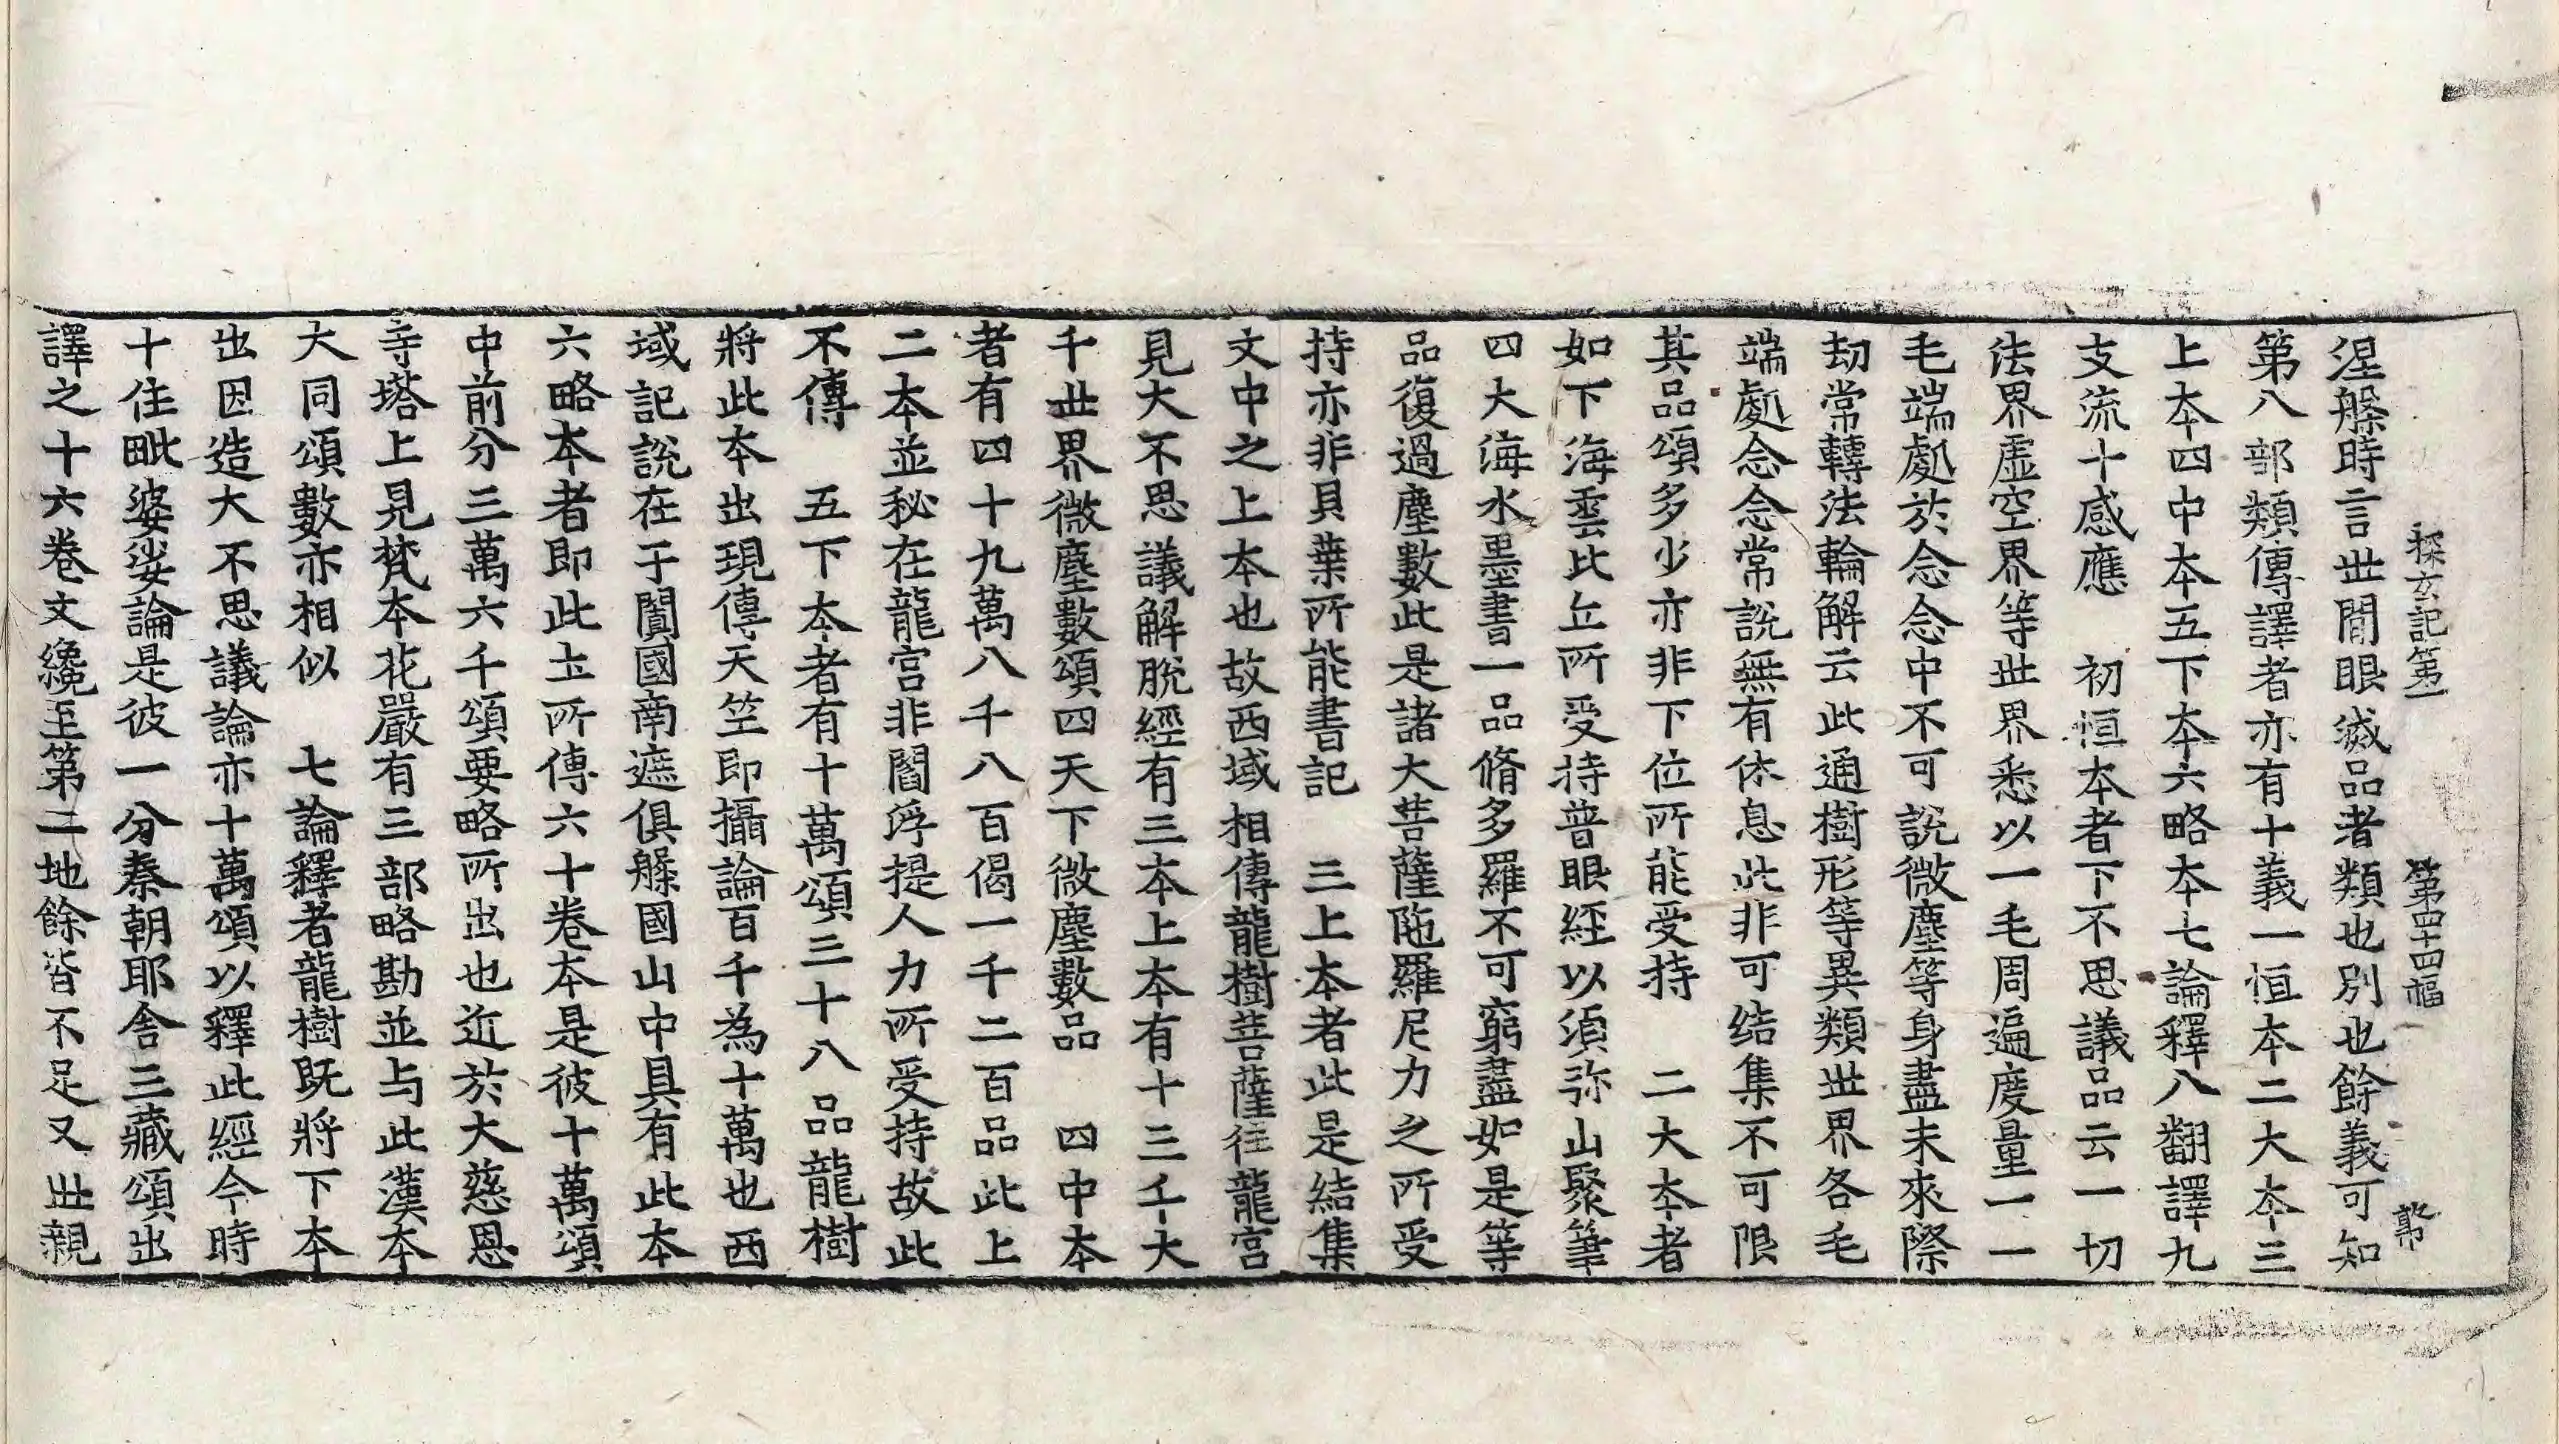 探玄記第一 第四十四幅 弊
涅槃時言世間眼滅品者類也別也餘義可知
第八部類傳譯者亦有十義一恒本二大本三
上本四中本五下本六略本七論釋八翻譯九
支流十感應 初恒本者下不思議品云一切
法界虛空界等世界悉以一毛周遍度量一一
毛端處於念念中不可說微塵等身盡未來際
劫常轉法輪解云此通樹形等異類世界各毛
端處念念常說無有休息此非可结集不可限
其品頌多少亦非下位所能受持 二大本者
如下海雲比丘所受持普眼經以須弥山聚筆
四大海水墨書一品脩多羅不可窮盡如是等
品復過塵數此是諸大菩薩陁羅尼力之所受
持亦非貝葉所能書記 三上本者此是結集
文中之上本也故西域相傳龍樹菩薩往龍宮
見大不思議解脫經有三本上本有十三千大
千世界微塵數頌四天下微塵數品 四中本
者有四十九萬八千八百偈一千二百品此上
二本並秘在龍宮非閻浮提人力所受持故此
不傳 五下本者有十萬頌三十八品龍樹
將此本出現傳天竺即攝論百千為十萬也西
域記說在于闐國南遮俱槃國山中具有此本
六略本者即此土所傳六十卷本是彼十萬頌
中前分三萬六千頌要略所出也近於大慈恩
寺塔上見梵本花嚴有三部略勘並与此漢本
大同頌數亦相似 七論釋者龍樹既將下本
出因造大不思議論亦十萬頌以釋此經今時
十住毗婆娑論是彼一分秦朝耶舍三藏頌出
譯之十六卷文纔至第二地餘皆不足又世親